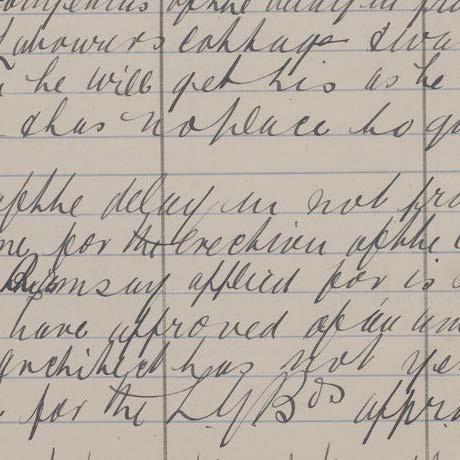 of the delay in pro
Labourers cottage & wa
he will get his as he
& has no place to go
of the delay in not pro
me for the erection of the
Ramsay applied for is
have approved of an am
architect has not ye
for the L.G.Bds appro